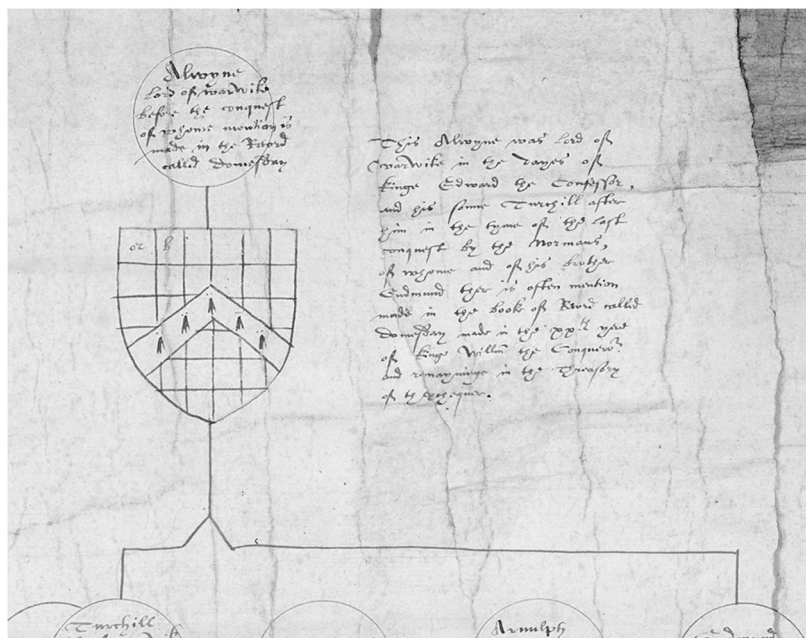 Alwyne
lord of warwike
before the conquest
of whome mention is
made in the Record
called Domesday
This Alwyne was lord of
warwike in the dayes of
kinge Edward the Confessor,
and his sonne Turchill after
him in the tyme of the last
conquest by the Normans,
of whome and of his brother
Gudmund ther is often mention
made in the book of Record called
Domesday made in the xxth yere
of kinge Willm the Conqueror
and remayninge in the Treasory
of thexchequer.
or b
Turchill
Arnulph